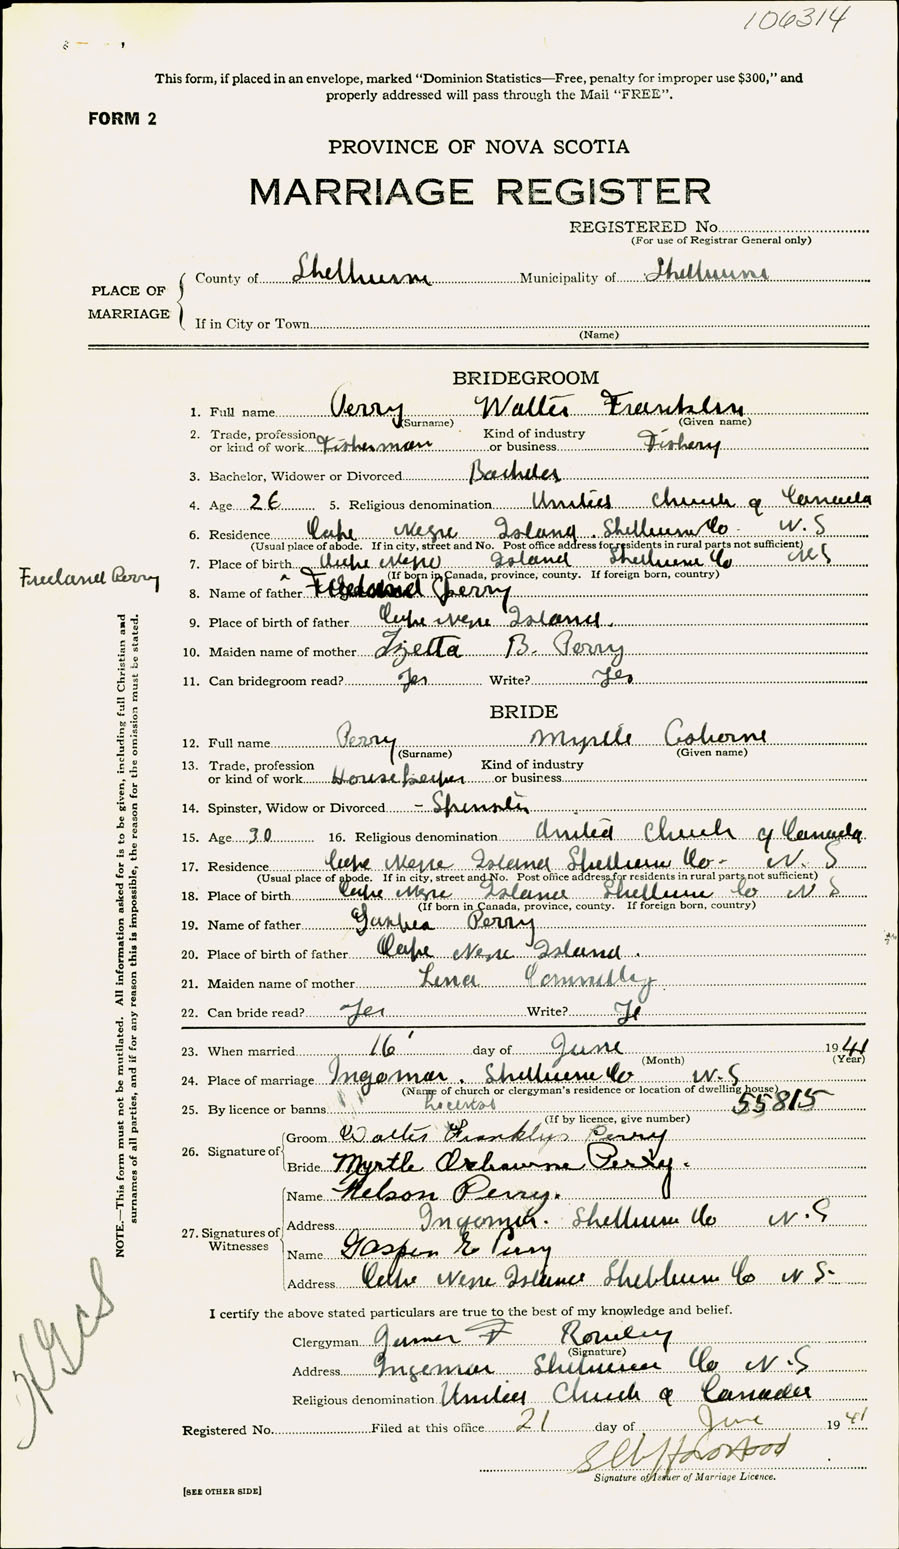 106314
This form, if placed in an envelope, marked "Dominion Statistics—Free, penalty for improper use $300," and
properly addressed will pass through the Mail "FREE".
FORM 2
PROVINCE OF NOVA SCOTIA
MARRIAGE REGISTER
REGISTERED No.
(For use of Registrar General only)
PLACE OF MARRIAGE
County of Shelburne Municipality of Shelburne
If in City or Town
(Name)
BRIDEGROOM
1. Full name Perry Walter Franklin
(Surname) (Given name)
2. Trade, profession or kind of work Fisherman Kind of industry or business Fishery
3. Bachelor, Widower or Divorced Bachelor
4. Age 26 5. Religious denomination United Church of Canada
6. Residence Cape Negro Island Shelburne Co. N.S
(Usual place of abode. If in city, street and No. Post office address for residents in rural parts not sufficient)
7. Place of birth Cape Negro Island Shelburne Co N.S
(If born in Canada, province, county. If foreign born, country)
Freeland Perry
8. Name of father Perry
9. Place of birth of father Cape Negro Island.
10. Maiden name of mother Izetta B. Perry
11. Can bridegroom read? Yes Write? Yes
BRIDE
12. Full name Perry Myrtle Osborne
(Surname) (Given name)
13. Trade, profession or kind of work Housekeeper Kind of industry or business
14. Spinster, Widow or Divorced - Spinster
15. Age 30 16. Religious denomination United Church of Canada
17. Residence Cape Negro Island Shelburne Co- N. S
(Usual place of abode. If in city, street and No. Post office address for residents in rural parts not sufficient)
18. Place of birth Cape Negro Island Shelburne Co N S
(If born in Canada, province, county. If foreign born, country)
19. Name of father Perry
20. Place of birth of father Cape Negro Island.
21. Maiden name of mother Lena
22. Can bride read? Yes Write? Ye
23. When married 16 day of June 1941
(Month) (Year)
24. Place of marriage Ingomar. Shelburne Co N.S
(Name of church or clergyman's residence or location of dwelling house)
25. By licence or banns 55815
(If by licence, give number)
26. Signature of
Groom Walter Perry
Bride Myrtle Osbourne Perry.
27. Signatures of Witnesses
Name Nelson Perry.
Address Ingomar. Shelburne Co N.S
Name E Perry
Address Cape Negro Island Shelburne Co N S.
I certify the above stated particulars are true to the best of my knowledge and belief.
Clergyman F
(Signature)
Address Ingomar Shelburne Co N.S
Religious denomination United Church of Canada
Registered No. Filed at this office 21 day of June 1941
Signature of Issuer of Marriage Licence.
[SEE OTHER SIDE]
NOTE.—This form must not be mutilated. All information asked for is to be given, including full Christian and
surnames of all parties, and if for any reason this is impossible, the reason for the omission must be stated.